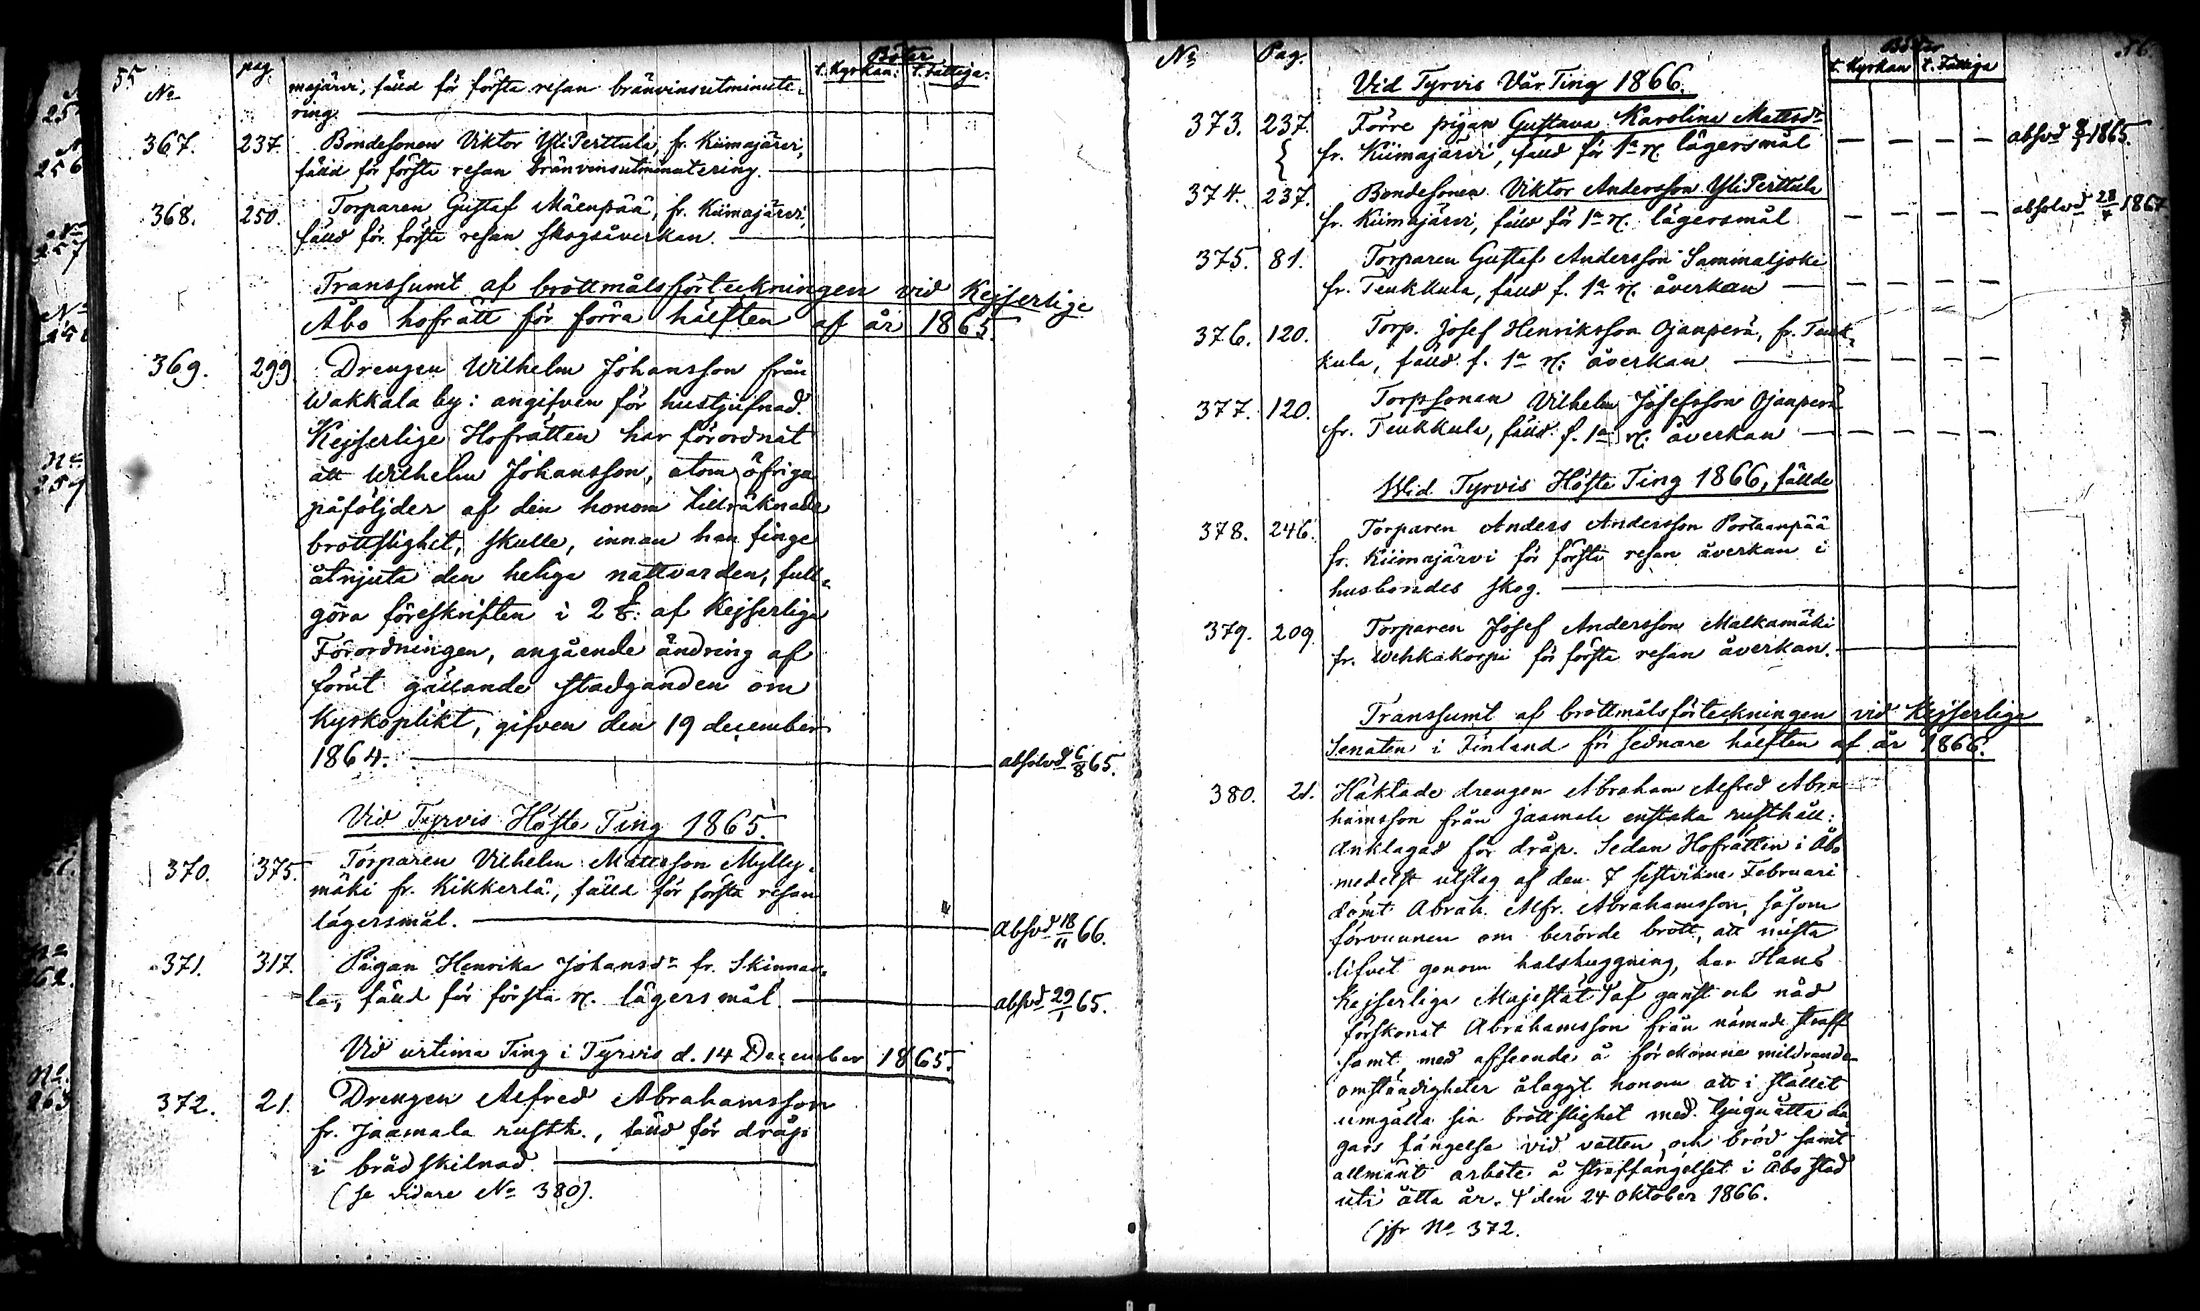 55
No pag. Böter
t. Kyrkan: t. Fattiga:
majärvi, fälld för första resan bränvinsutminute-
ring.
367. 237. Bondesonen Viktor YliPerttula, fr. Kiimajärvi,
fälld för första resan bränvinsutminutering.
368. 250. Torparen Gustaf Mäenpää, fr. Kiimajärvi,
fälld för första resan skogsåverkan.
Transsumt af brottmålsförteckningen vid Kejserlige
Åbo hofrätt för förra hälften af år 1865.
369. 299 Drengen Wilhelm Johansson från
Wakkala by: angifven för hustjufnad.
Kejserlige Hofrätten har förordnat
att Wilhelm Johansson, utom öfriga
påföljder af den honom tillräknade
brottslighet, skulle, innan han finge
åtnjuta den heliga nattvarden, full-
göra föreskriften i 2 §: af Kejserliga
Förordningen, angående ändring af
förut gällande stadganden om
Kyrkoplikt, gifven den 19 december
1864. absolvd 6/8 65.
Vid Tyrvis Höste Ting 1865.
370. 375. Torparen Vilhelm Mattsson Mylly-
mäki fr. Kikkerlä, fälld för första resan
lägersmål. Absvd 18/11 66.
371. 317. Pigan Henrika Johansdr fr. Skinnar-
la, fälld för första rs. lägersmål. absvd 29/1 65.
Vid urtima Ting i Tyrvis d. 14 December 1865.
372. 21. Drengen Alfred Abrahamsson
fr. Jaamala rusth., fälld för dråp
i brådskilnad.
(se vidare No 380).
56.
No Pag. Böter
t. Kyrkan t. Fattiga
Vid Tyrvis Vår Ting 1866.
373. 237. Förre pigan Gustava Karolina Mattsdr
fr. Kiimajärvi, fälld för 1a rs. lägersmål absvd 1865.
374. 237. Bondesonen Viktor Andersson YliPerttula
fr. Kiimajärvi, fälld för 1a rs. lägersmål absolvd 28/4 1867
375. 81. Torparen Gustaf Andersson Sammaljoki
fr. Teukkula, fälld f. 1a rs. åverkan
376. 120. Torp. Josef Henriksson Ojanperä, fr. Teuk-
kula, fälld f. 1a rs. åverkan
377. 120. Torpsonen Vilhelm Josefsson Ojanperä
fr. Teukkula, fälld f. 1a rs. åverkan
Wid Tyrvis Höste Ting 1866, fällde
378. 246. Torparen Anders Andersson Portaanpää
fr. Kiimajärvi för första resan åverkan i
husbondes skog.
379. 209 Torparen Josef Andersson Malkamäki
fr. Wehkakorpi för första resan åverkan.
Transsumt af brottmålsförteckningen vid Kejserliga
Senaten i Finland för sednare hälften af år 1866.
380. 21. Häktade drengen Abraham Alfred Abra-
hamsson från Jaamala enstaka rusthåll:
anklagad för dråp. Sedan Hofrätten i Åbo
medelst utslag af den 7 sistvikne Februari
dömt Abrah. Alfr. Abrahamsson, såsom
förvunnen om berörde brott, att mista
lifvet genom halshuggning, har Hans
Kejserliga Majestät af gunst och nåd
förskonat Abrahamsson från nämnde straff
samt med afseende å förekomne mildrande
omständigheter ålaggt honom att i stället
umgälla sin brottslighet med tjuguåtta da-
gars fängelse vid vatten och bröd samt
allmänt arbete å straffängelset i Åbo stad
uti åtta år. den 24 Oktober 1866.
(jfr No 372.